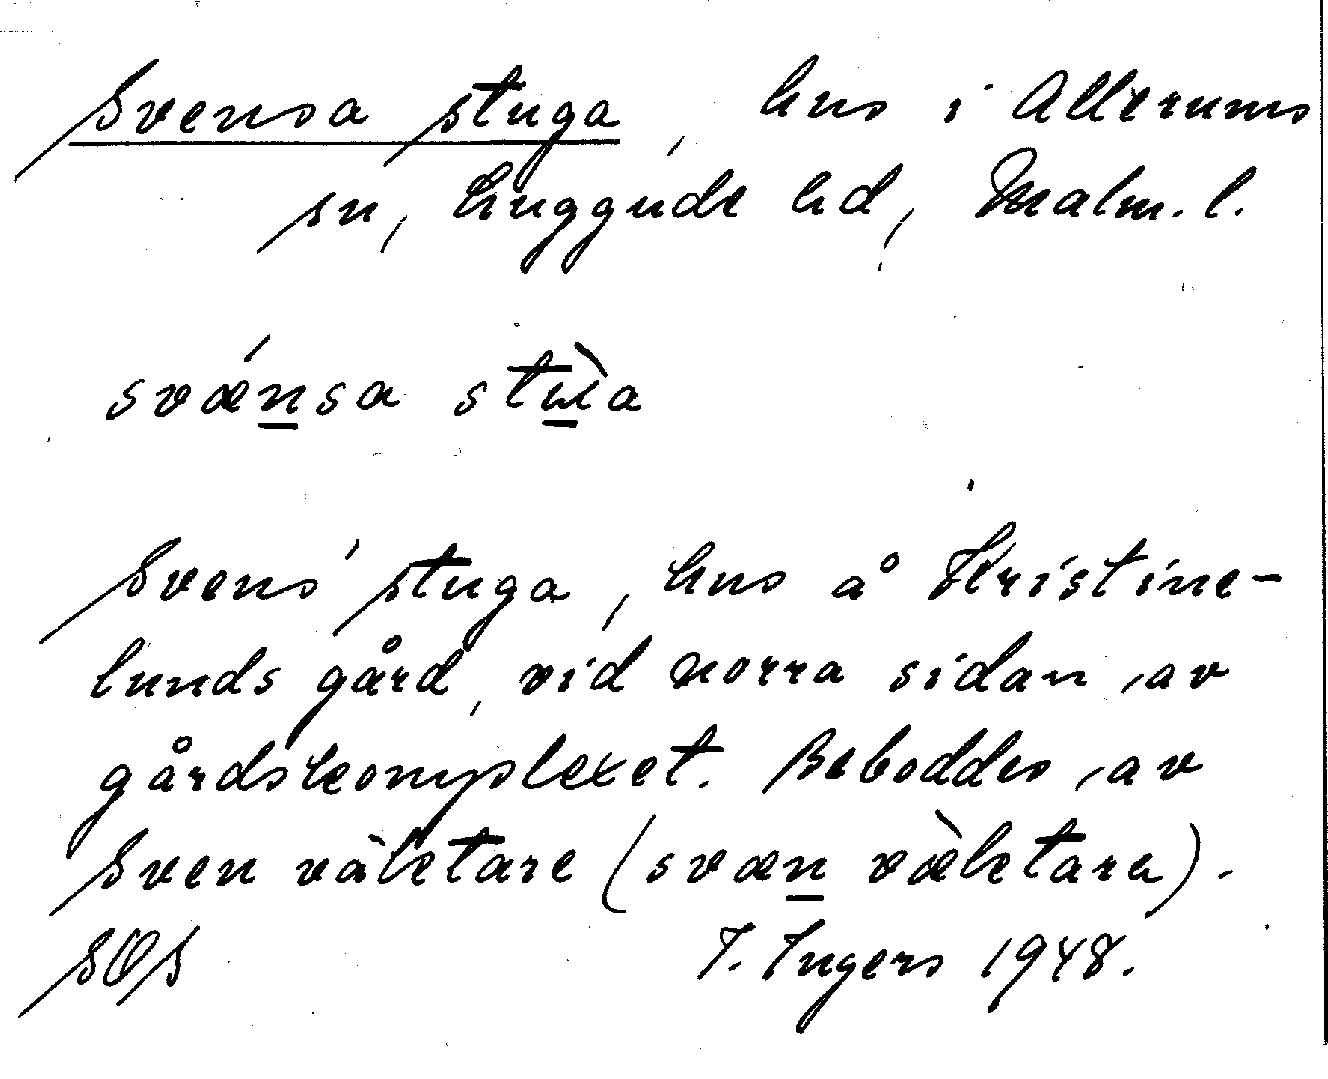 Svensa stuga, hus i Allerums
sn, Luggude hd, Malm. l.
svæ´nsa stùa
Svens' stuga, hus å Kristine-
lunds gård, vid norra sidan av
gårdskomplexet. Beboddes av
Sven väktare (svæn væ̀ktara).
SOS I. Ingers 1948.